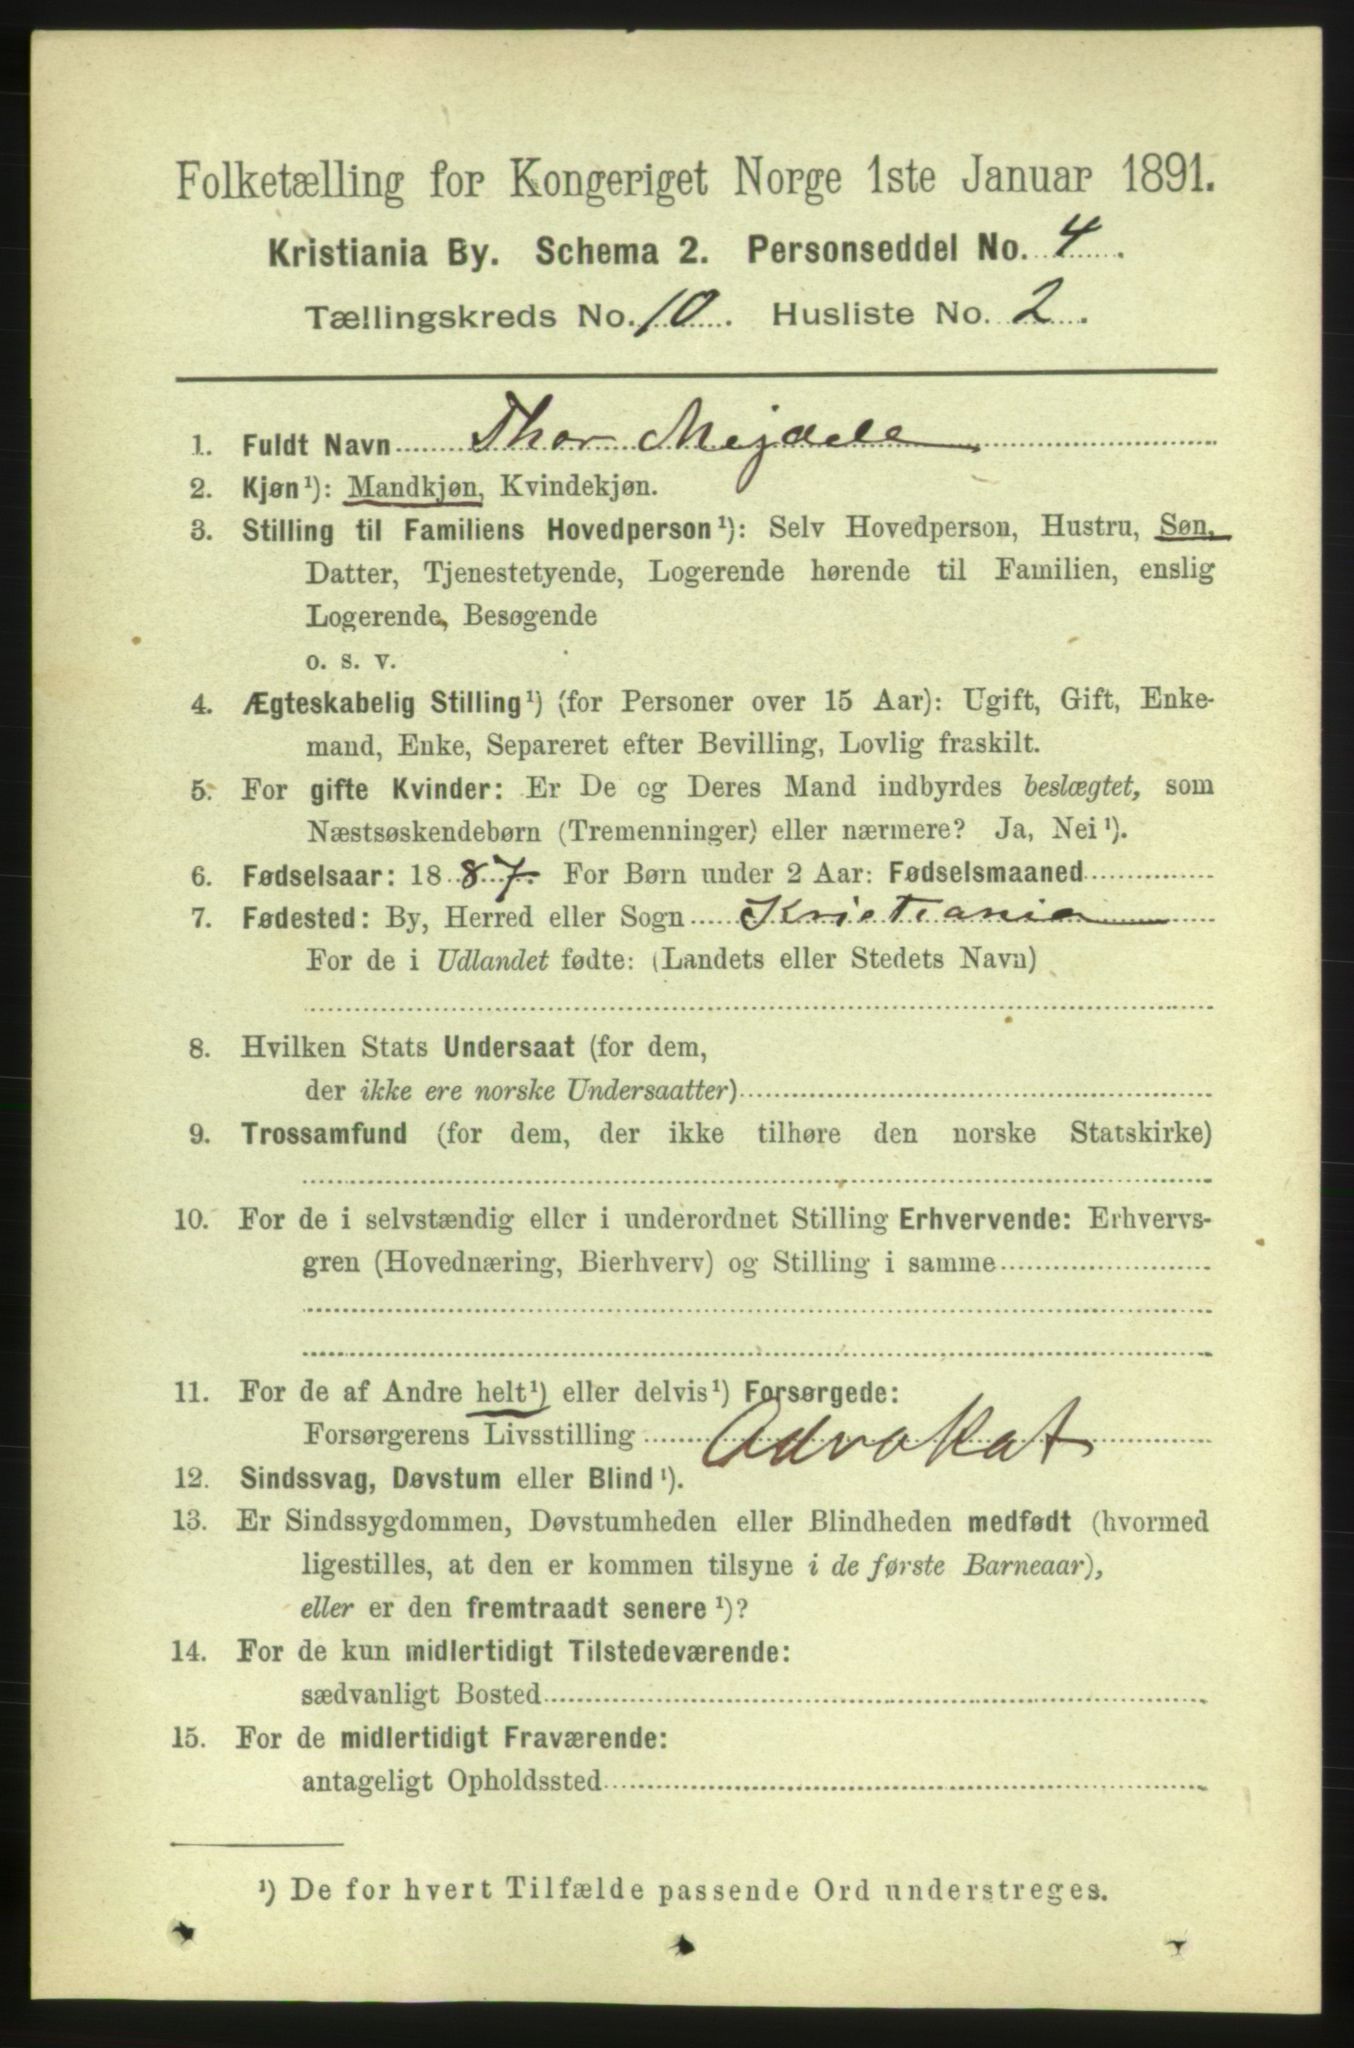 Folketælling for Kongeriget Norge 1ste Januar 1891.
Kristiania By. Schema 2. Personseddel No. 4.
Tællingskreds No. 10. Husliste No. 2.
1. Fuldt Navn Thor Mejdell
2. Kjøn¹): Mandkjøn, Kvindekjøn.
3. Stilling til Familiens Hovedperson¹): Selv Hovedperson, Hustru, Søn,
Datter, Tjenestetyende, Logerende hørende til Familien, enslig
Logerende, Besøgende
o. s. v.
4. Ægteskabelig Stilling¹) (for Personer over 15 Aar): Ugift, Gift, Enke-
mand, Enke, Separeret efter Bevilling, Lovlig fraskilt.
5. For gifte Kvinder: Er De og Deres Mand indbyrdes beslægtet, som
Næstsøskendebørn (Tremenninger) eller nærmere? Ja, Nei¹).
6. Fødselsaar: 1887. For Børn under 2 Aar: Fødselsmaaned
7. Fødested: By, Herred eller Sogn Kristiania
For de i Udlandet fødte: (Landets eller Stedets Navn)
8. Hvilken Stats Undersaat (for dem,
der ikke ere norske Undersaatter)
9. Trossamfund (for dem, der ikke tilhøre den norske Statskirke)
10. For de i selvstændig eller i underordnet Stilling Erhvervende: Erhvervs-
gren (Hovednæring, Bierhverv) og Stilling i samme
11. For de af Andre helt¹) eller delvis¹) Forsørgede:
Forsørgerens Livsstilling Advokat
12. Sindssvag, Døvstum eller Blind¹).
13. Er Sindssygdommen, Døvstumheden eller Blindheden medfødt (hvormed
ligestilles, at den er kommen tilsyne i de første Barneaar),
eller er den fremtraadt senere¹)?
14. For de kun midlertidigt Tilstedeværende:
sædvanligt Bosted
15. For de midlertidigt Fraværende:
antageligt Opholdssted
¹) De for hvert Tilfælde passende Ord understreges.